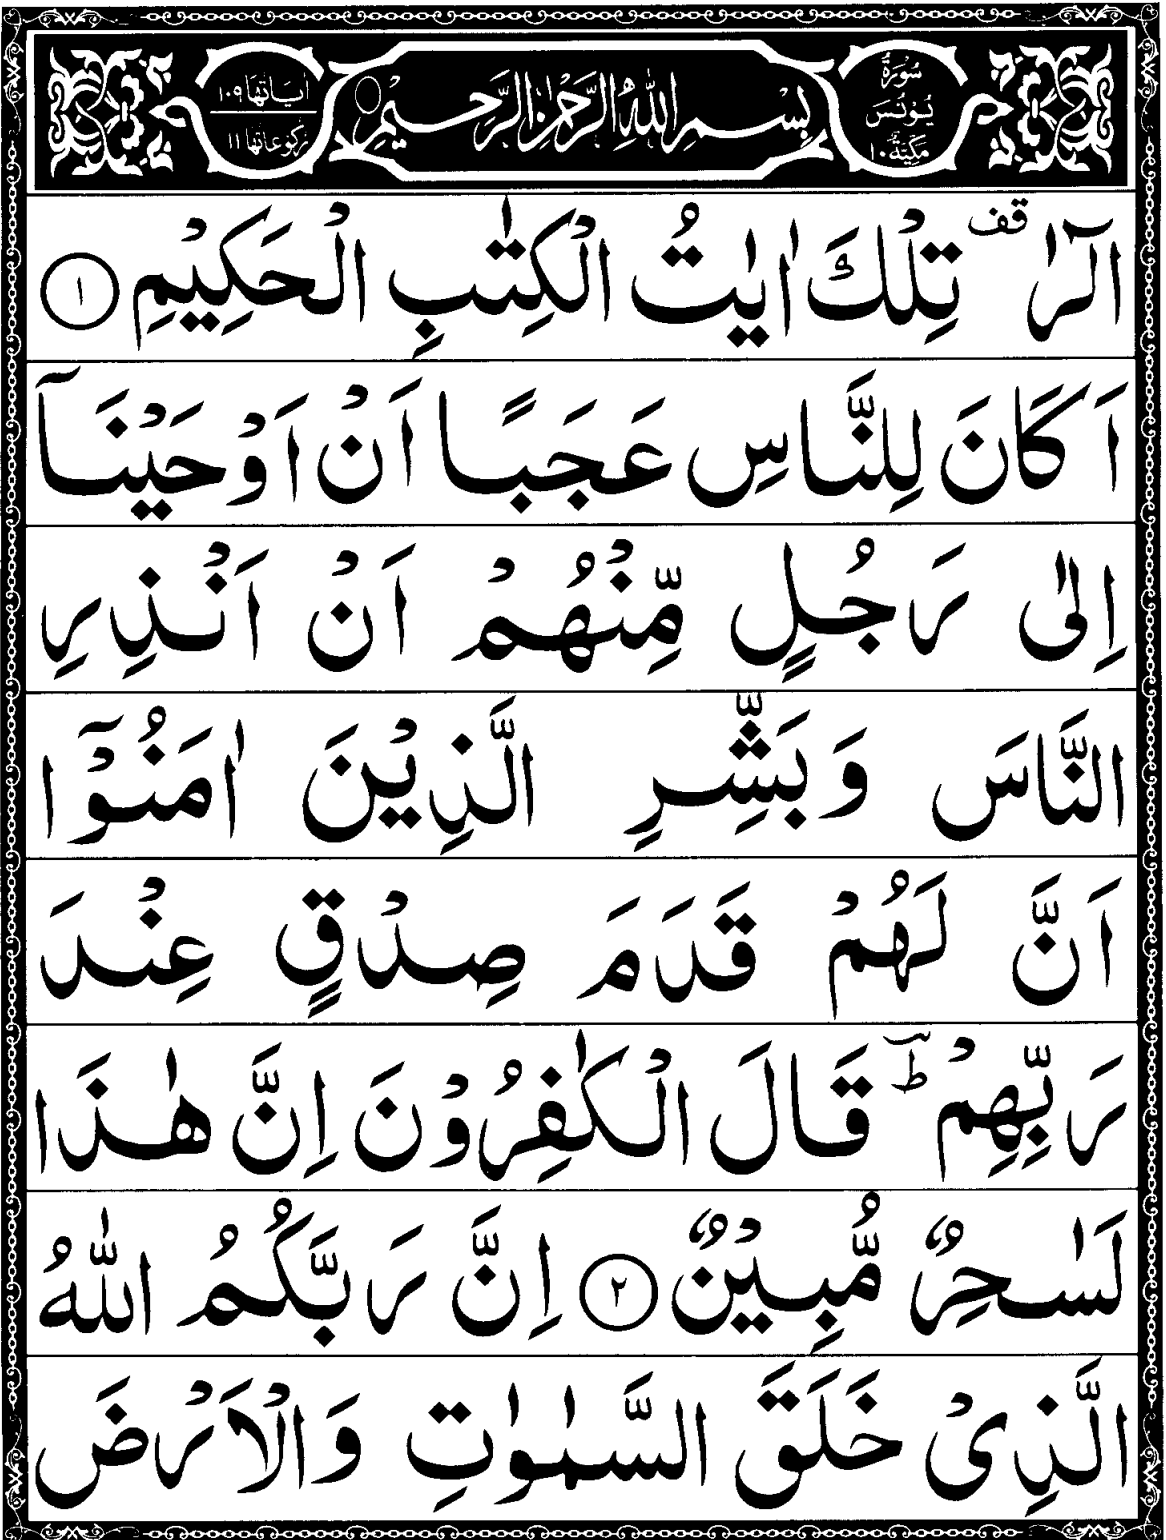 سُوْرَةُ
يُوْنُسَ
مَكِّيَّةٌ ١٠
بِسْمِ اللّٰهِ الرَّحْمٰنِ الرَّحِيْمِ
اٰيَاتُهَا ١٠٩
رُكُوْعَاتُهَا ١١
الٓرٰ قف تِلْكَ اٰيٰتُ الْكِتٰبِ الْحَكِيْمِ ١
اَكَانَ لِلنَّاسِ عَجَبًا اَنْ اَوْحَيْنَاۤ
اِلٰى رَجُلٍ مِّنْهُمْ اَنْ اَنْذِرِ
النَّاسَ وَبَشِّرِ الَّذِيْنَ اٰمَنُوْۤا
اَنَّ لَهُمْ قَدَمَ صِدْقٍ عِنْدَ
رَبِّهِمْ ؕ قَالَ الْكٰفِرُوْنَ اِنَّ هٰذَا
لَسٰحِرٌ مُّبِيْنٌ ٢ اِنَّ رَبَّكُمُ اللّٰهُ
الَّذِىْ خَلَقَ السَّمٰوٰتِ وَالْاَرْضَ